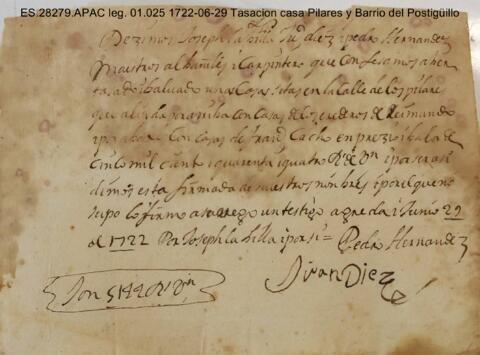 ES.28279.APAC leg. 01.025 1722-06-29 Tasacion casa Pilares y Barrio del Postigüillo
Dezimos Joseph la Villa Juº diez i pedro Hernandez
Maestros albañiles i Carpintero que
unas Casas sitas en la Calle de los pilares
que alinda por arriba con Casas de los erederos de Reimundo
i por abajo Con Casas de franco Cacho en prezio i
Cinco mil ciento i quarenta i quatro Rs de Vn i por ser asi
dimos esta firmada de nuestros nonbres i por el que no
supo lo firmo a su ruego un testigo agreda i Junio 29
de 1722 Por Joseph la Villa i por si = Pedro Hernandez
Son 5144 Rs Vn
Juan Diez